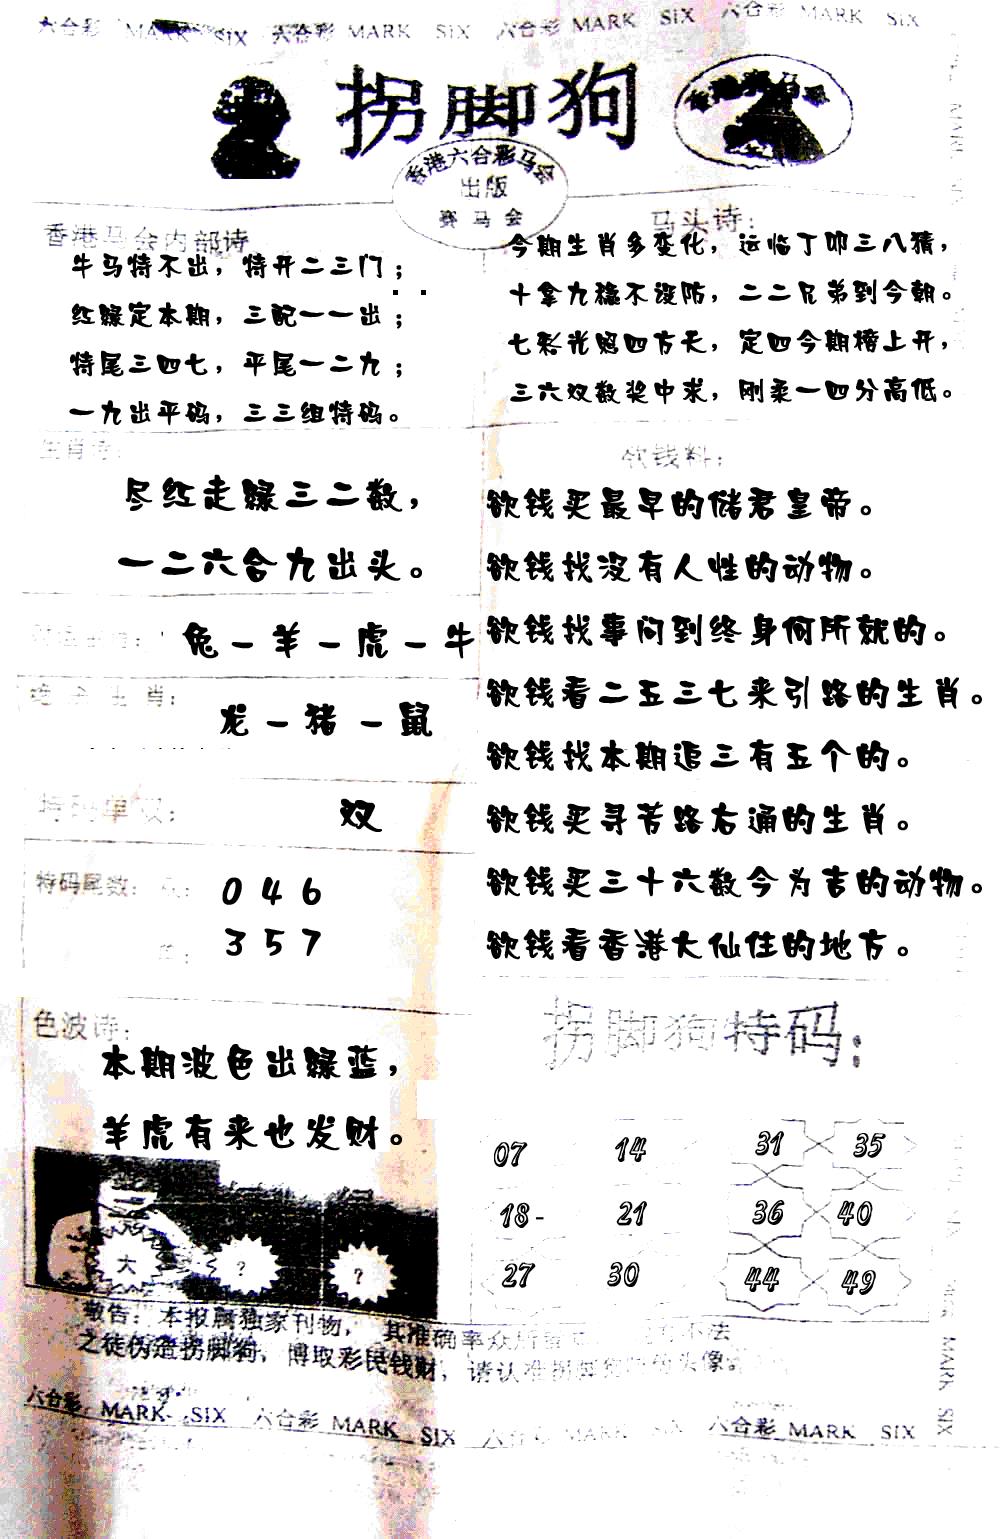 六合彩 MARK SIX 六合彩 MARK SIX 六合彩 MARK SIX 六合彩 MARK SIX
拐脚狗
香港六合彩马会
出版
赛马会
香港马会内部诗
牛马特不出，特开二三门；
红绿定本期，三配一一出；
特尾三四七，平尾一二九；
一九出平码，三三组特码。
马头诗：
今期生肖多变化，运临丁卯三八猜，
十拿九稳不设防，二二兄弟到今朝。
七彩光照四方天，定四今期榜上开，
三六双数奖中求，刚柔一四分高低。
生肖诗：
尽红走绿三二数，
一二六合九出头。
兔－羊－虎－牛
生肖：
龙－猪－鼠
特码单双：
双
特码尾数：
0 4 6
3 5 7
欲钱料：
欲钱买最早的储君皇帝。
欲钱找没有人性的动物。
欲钱找事问到终身何所就的。
欲钱看二五三七来引路的生肖。
欲钱找本期追三有五个的。
欲钱买寻苦路右通的生肖。
欲钱买三十六数今为吉的动物。
欲钱看香港大仙住的地方。
色波诗：
本期波色出绿蓝，
羊虎有来也发财。
大 ? ?
拐脚狗特码：
07 14 31 35
18- 21 36 40
27 30 44 49
敬告：本报属独家刊物，其准确率众所 不法
之徒伪造拐脚狗，博取彩民钱财，请认准拐脚 头像。
六合彩 MARK SIX 六合彩 MARK SIX 六合彩 MARK SIX 六合彩 MARK SIX
MARK SIX